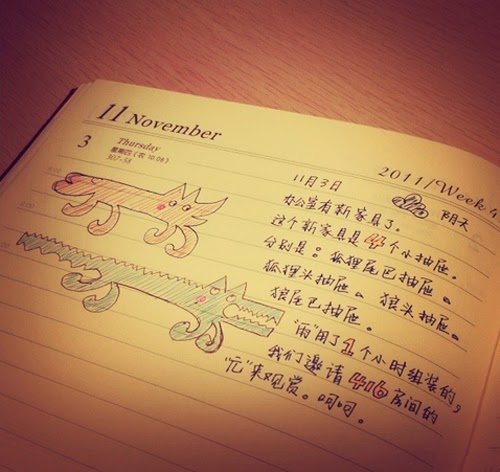 11 November
2011/Week 4
3
Thursday
星期四 (农 10.08)
307-58
11月3日
阴天
办公室有新家具了。
这个新家具是4个小抽屉。
分别是：狐狸尾巴抽屉。
狐狸头抽屉。狼头抽屉。
狼尾巴抽屉。
"雨"用了1个小时组装的，
我们邀请416房间的
"亢"来观赏。呵呵。